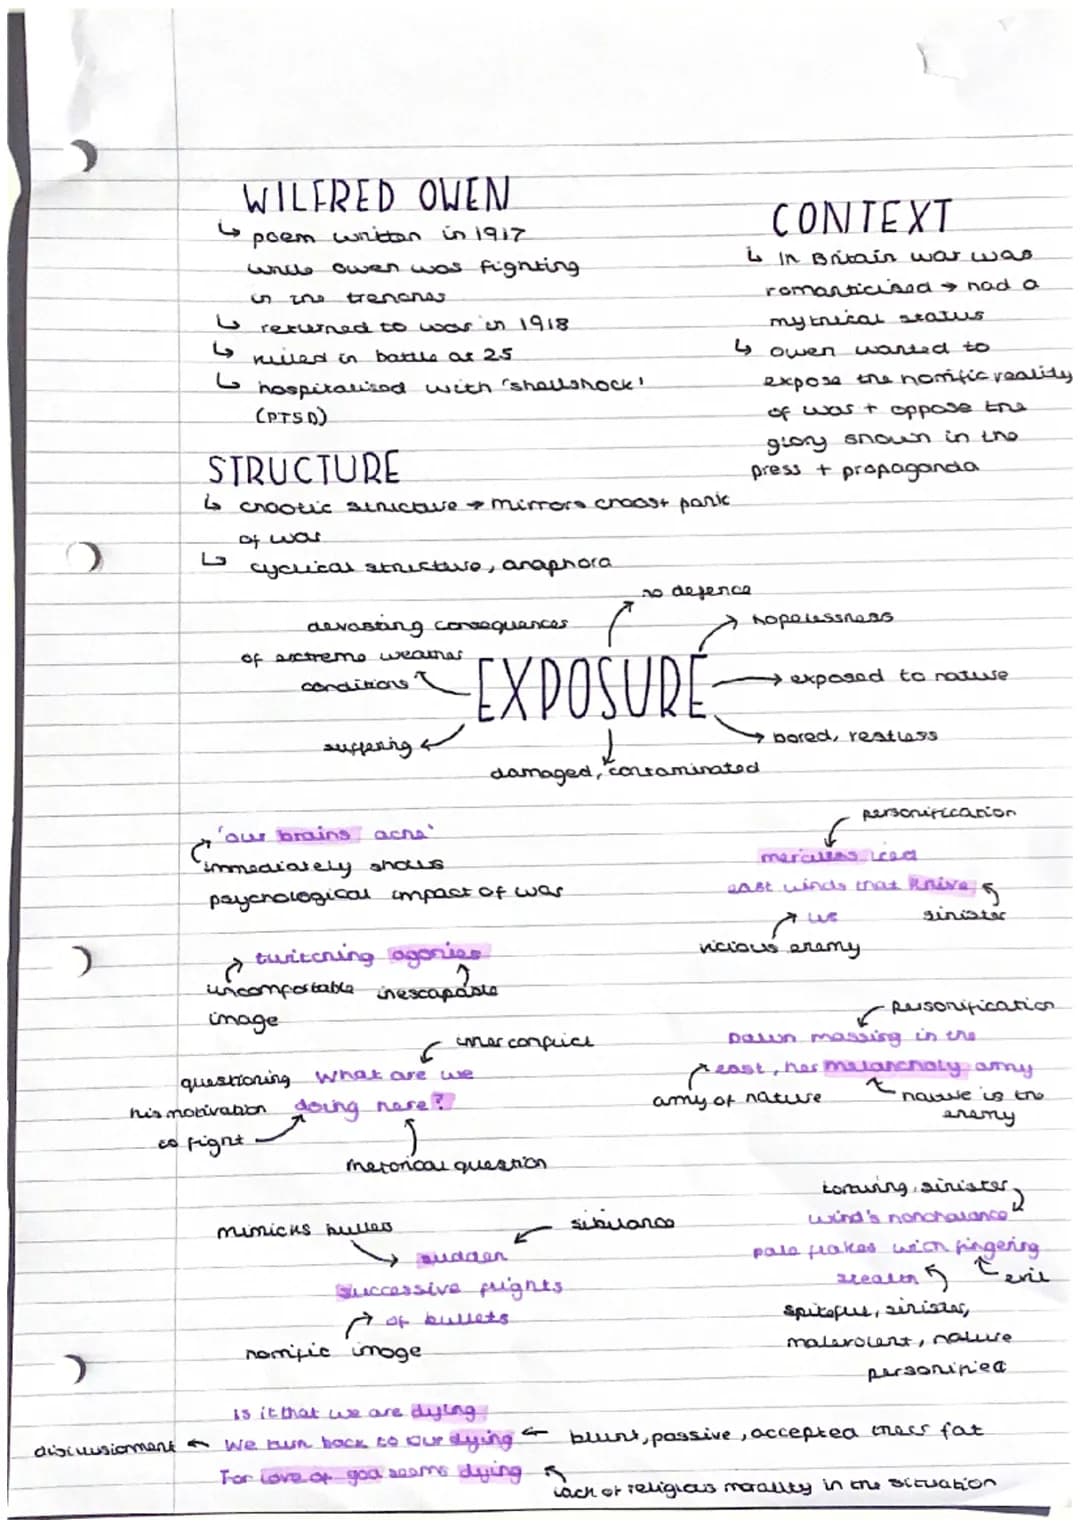 WILFRED OWEN
↳ poem written in 1917
while owen was fighting
in the trenches
↳ returned to war in 1918
↳ killed in battle at 25
↳ hospitalised with 'shellshock'
(PTSD)
CONTEXT
↳ In Britain war was
romanticised → had a
mythical status
↳ owen wanted to
expose the horrific reality
of war + oppose the
glory shown in the
press + propaganda
STRUCTURE
↳ chaotic structure → mirrors chaos + panic
of war
↳ cyclical structure, anaphora
no defence
hopelessness
devasting consequences
of extreme weather
conditions
EXPOSURE
exposed to nature
suffering
bored, restless
damaged, contaminated
'our brains ache'
immediately shows
psychological impact of war
personification
merciless iced
east winds that knive
us
sinister
vicious enemy
twitching agonies
uncomfortable inescapable
image
inner conflict
questioning What are we
his motivation doing here?
to fight
rhetorical question
personification
Dawn massing in the
east, her melancholy army
army of nature
nature is the
enemy
mimicks bullets
sibilance
sudden
successive flights
of bullets
horrific image
torturing, sinister
wind's nonchalance
pale flakes with fingering
stealth
evil
spiteful, sinister,
malevolent, nature
personified
Is it that we are dying
disillusionment ← We turn back to our dying ← blunt, passive, accepted their fat
For love of god seems dying
lack of religious morality in the situation